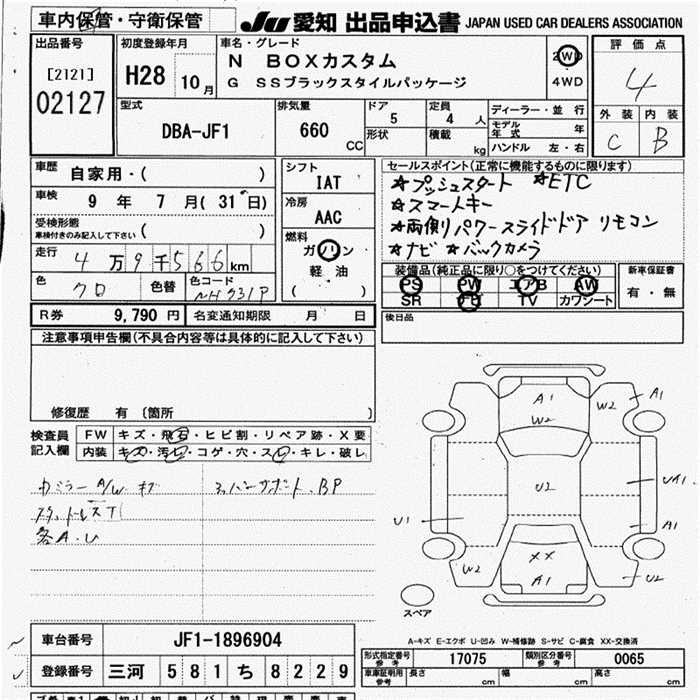 車内保管・守衛保管
JU 愛知 出品申込書 JAPAN USED CAR DEALERS ASSOCIATION
出品番号 初度登録年月 車名・グレード 評価点
[2121] H28 10月 N BOXカスタム 2WD 4
02127 G SSブラックスタイルパッケージ 4WD
外装 内装
型式 排気量 ドア 定員 ディーラー・並行
DBA-JF1 660 CC 5 4 人 モデル年式 年 C B
形状 積載 kg ハンドル 左・右
車歴 自家用・( ) シフト セールスポイント(正常に機能するものに限ります)
車検 9年 7月(31日) IAT ☆プッシュスタート ☆ETC
冷房 ☆スマートキー
受検形態 ( ) AAC ☆両側パワースライドドア リモコン
車検付きのみ記入して下さい
燃料 ☆ナビ ☆バックカメラ
走行 4万9千566km ガソリン
色 クロ 色替 色コード NH731P 軽油 ( )
装備品(純正品に限り○をつけてください) 新車保証書
PS PW エアB AW 有・無
SR ナビ TV カワシート
R券 9,790円 名変通知期限 月 日 検日品
注意事項申告欄(不具合内容等は具体的に記入して下さい)
修復歴 有 〔箇所 〕
検査員 FW キズ・飛石・ヒビ割・リペア跡・X要
記入欄 内装 キズ・汚レ・コゲ・穴・スレ・キレ・破レ
A/W キズ BP
各A.U
A1
W2
W2
A1
U2
UA1
U1
A1
XX
A1
W2
U2
スペア
A-キズ E-エクボ U-凹み W-補修跡 S-サビ C-腐食 XX-交換済
車台番号 JF1-1896904
登録番号 三河 581 ち 8229
形式指定番号 参考 17075 類別区分番号 参考 0065
車庫証明用 参考 長さ cm 幅 cm 高さ cm